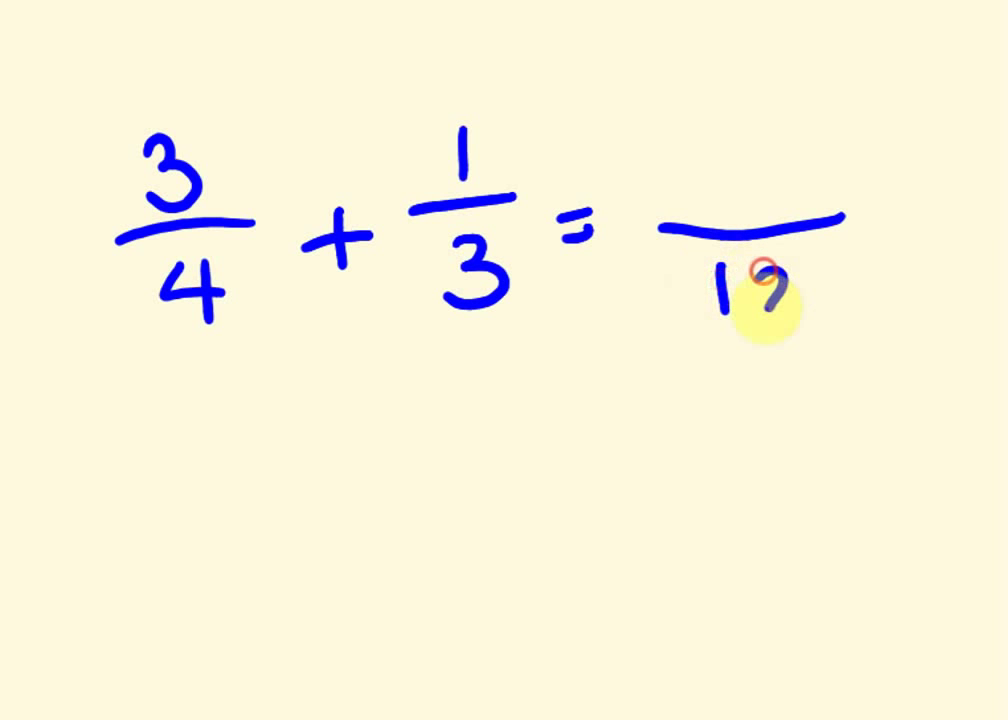 3/4 + 1/3 = /1